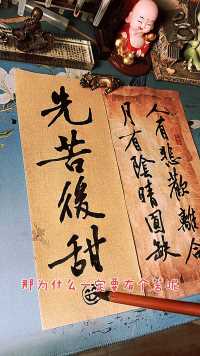 先苦後甜
人有悲歡離合
月有陰晴圓缺
那为什么一定要有个苦呢